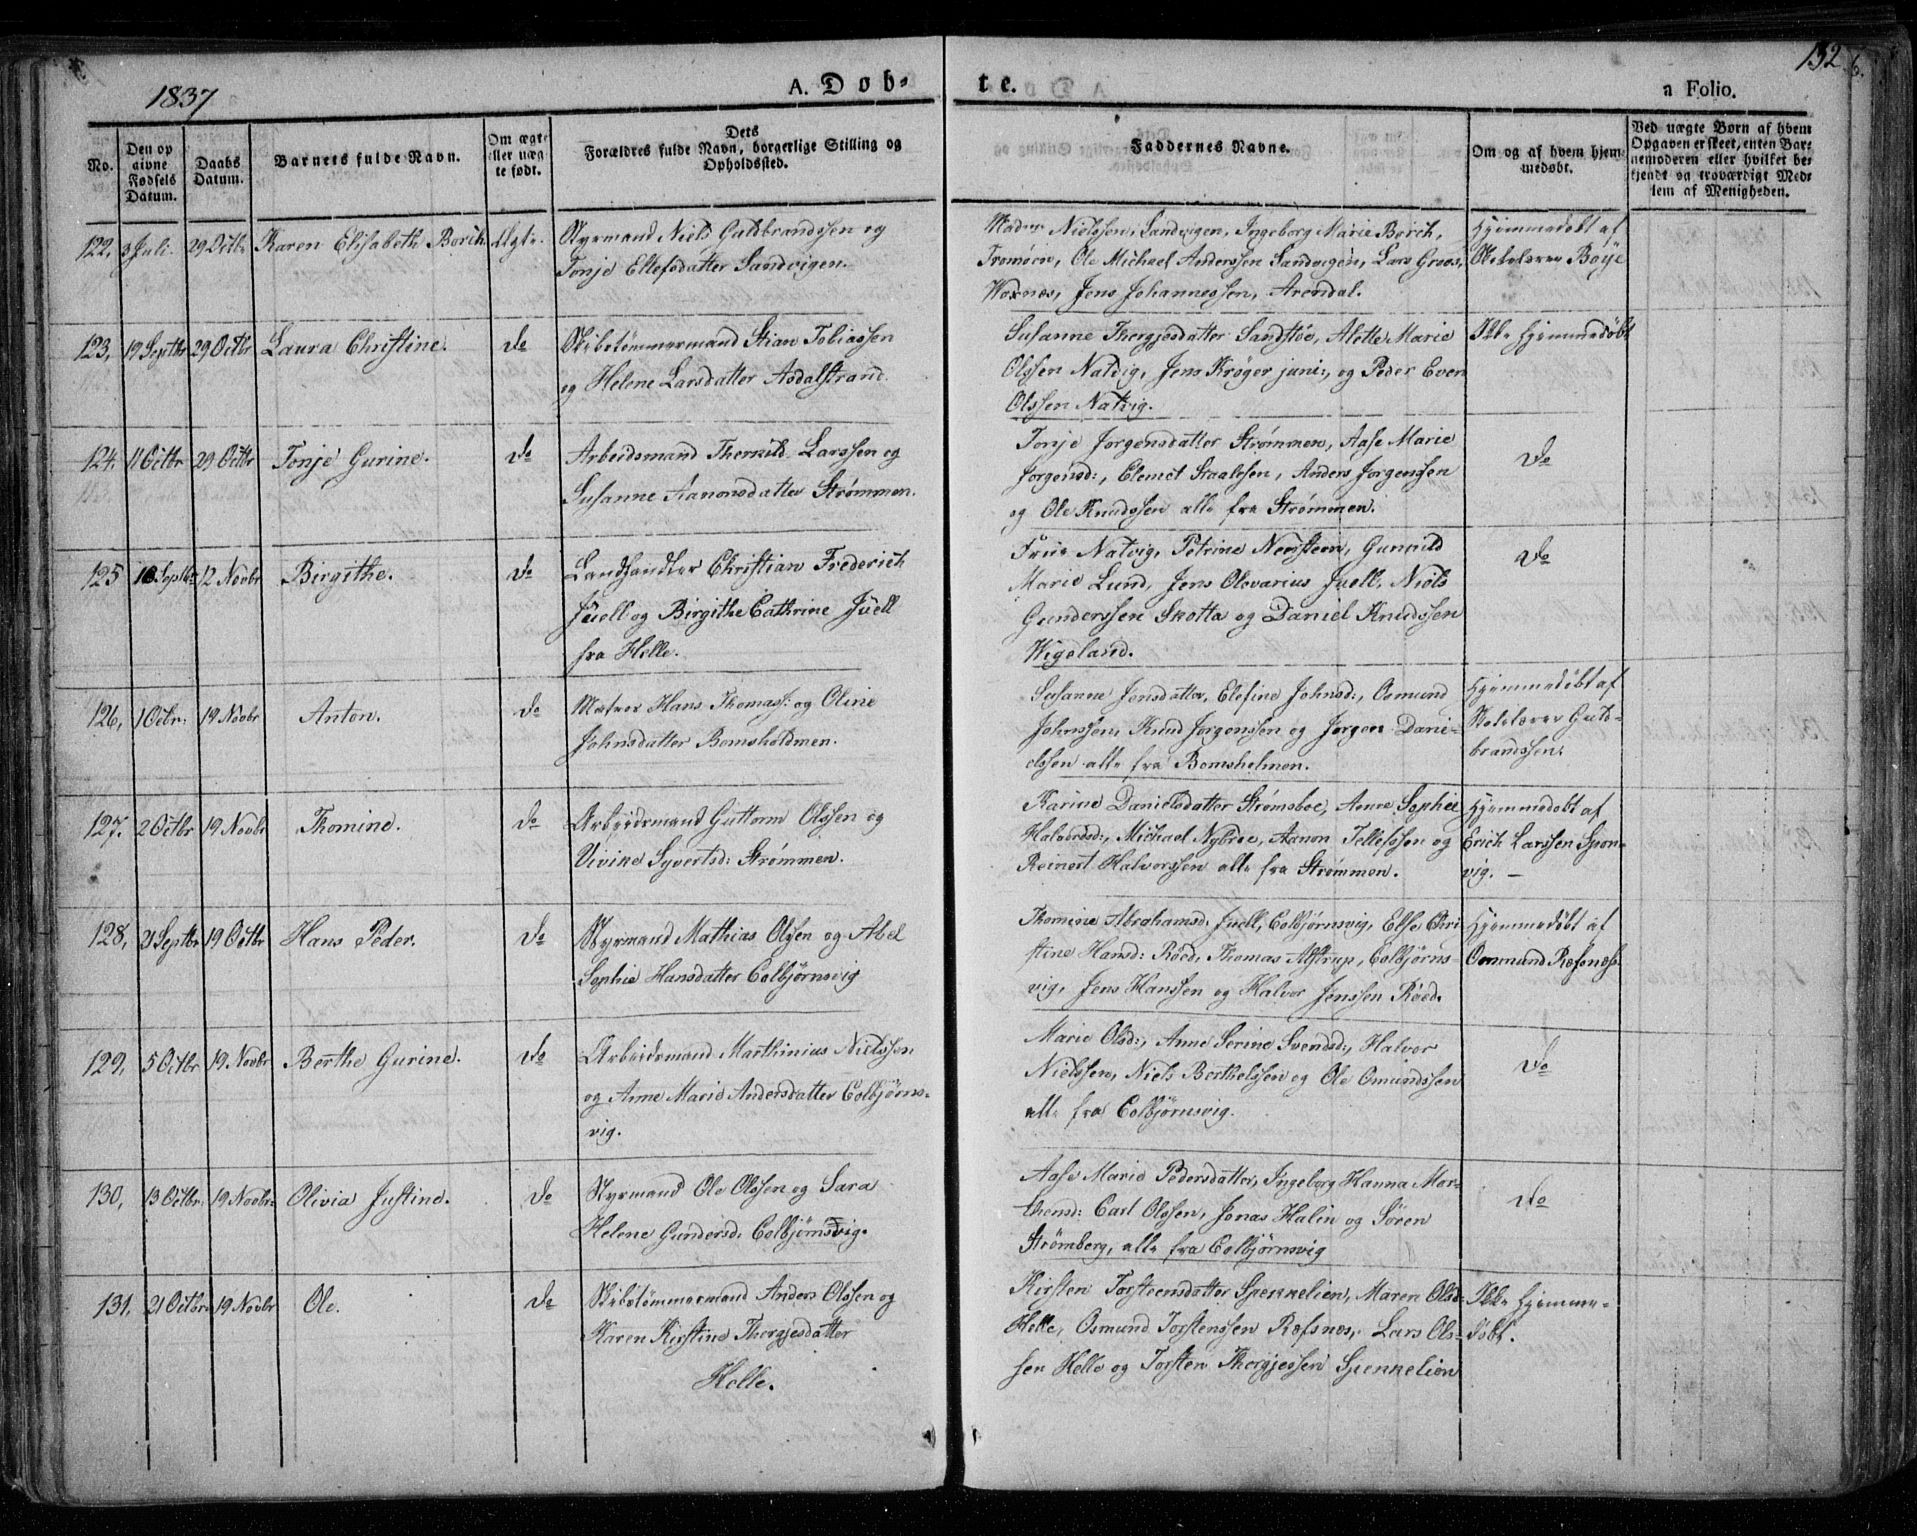 1837
A. Døb-
te.
132
6.
a Folio.
No.
Den op
givne
Fødsels
Datum.
Daabs
Datum.
Barnets fulde Navn.
Om ægte
eller uæg
te født.
Dets
Forældres fulde Navn, borgerlige Stilling og
Opholdssted.
Faddernes Navne.
Om og af hvem hjem-
medøbt.
Ved uægte Børn af hvem
Opgaven er skeet, enten Bar-
nemoderen eller hvilket be-
kjendt og troværdigt Med-
lem af Menigheden.
122, 3 Juli. 29 Octbr Karen Elisabeth Borich Ægte.
Styrmand Niels Guldbrandssen og
Tonje Ellefsdatter Sandvigen.
Madme Nielssen, Sandvigen, Ingeborg Marie Borich,
Tromøen, Ole Michael Anderssen Sandvigen, Lars Groos,
Woxnæs, Jens Johannessen, Arendal.
Hjemmedøbt af
Skolelærer Boye
123, 19 Septbr 29 Octbr Laura Christine. do
Skibstømmermand Stian Tobiassen
og Helene Larsdatter Asdalstrand.
Susanne Thorgjesdatter Sandstøe, Alette Marie
Olssen Natvig, Jens Krøger juni:, og Peder Even
Olssen Natvig.
Ikke Hjemmedøbt
124. 11 Octbr 29 Octbr Tonje Gurine. do
Arbeidsmand Therkild Larssen og
Susanne Aanonsdatter Strømmen.
Tonje Jorgensdatter Strømmen, Aase Marie
Jorgensd:, Clemet Staalesen, Anders Jorgenssen
og Ole Knudssen alle fra Strømmen.
do
125 18 Septbr 12 Novbr Birgithe. do
Landhandler Christian Frederich
Juell og Birgithe Cathrine Juell
fra Helle.
Frue Natvig, Petrine Neersteen, Gunnild
Marie Lund, Jens Olovarius Juell, Niels
Gunderssen Skotta og Daniel Knudssen
Wigeland.
do
126, 1 Octbr. 19 Novbr Anton. do
Matros Hans Thomass: og Oline
Johnsdatter Bomsholmen.
Susanne Jensdatter, Elefine Johnsd:, Osmund
Johnssen, Knud Jorgenssen og Jørgen Danie-
elssen alle fra Bomsholmen.
Hjemmedøbt af
Skolelærer Guld-
brandssen.
127. 2 Octbr 19 Novbr Thomine. do
Arbeidsmand Guttorm Olssen og
Vivike Syvertsd: Strømmen.
Karine Danielsdatter Strømsboe, Anne Sophie
Halvorsd:, Michael Nybroe, Aanon Tellefssen og
Reinert Halvorssen alle fra Strømmen.
Hjemmedøbt af
Erich Larssen Spor-
vig. –
128, 21 Septbr 19 Octbr Hans Peder. do
Styrmand Mathias Olssen og Abel
Sophie Hansdatter Colbjørnsvig
Thomine Abrahamsd: Juell, Colbjørnsvig, Else Chri
stine Hansd: Røed, Thomas Alstrup, Colbjørns-
vig, Jens Hanssen og Halvor Jenssen Røed.
Hjemmedøbt af
Osmund Ræfsnæs.
129, 5 Octbr 19 Novbr Berthe Gurine. do
Arbeidsmand Marthinius Nielssen
og Anne Marie Andersdatter Colbjørns-
vig.
Marie Olsd:, Anne Serine Svendsd:, Halvor
Nielssen, Niels Berthelssen og Ole Omundssen
alle fra Colbjørnsvig.
do
130, 13 Octbr. 19 Novbr. Olivia Justine. do
Styrmand Ole Olssen og Sara
Helene Gundersd: Colbjørnsvig.
Aase Marie Pedersdatter, Ingeborg Hanna Mor-
thensd: Carl Olssen, Jonas Halin og Søren
Strømberg, alle fra Colbjørnsvig
do
131. 21 Octbr 19 Novbr Ole. do
Skibstømmermand Anders Olssen og
Karen Kirstine Thorgjesdatter
Helle.
Kirsten Torsteensdatter Spennelien, Maren Olsd:
Helle, Osmund Torstenssen Ræfsnæs, Lars Ols-
sen Helle og Torsten Thorgjessen Spennelien
Ikke Hjemme-
døbt.